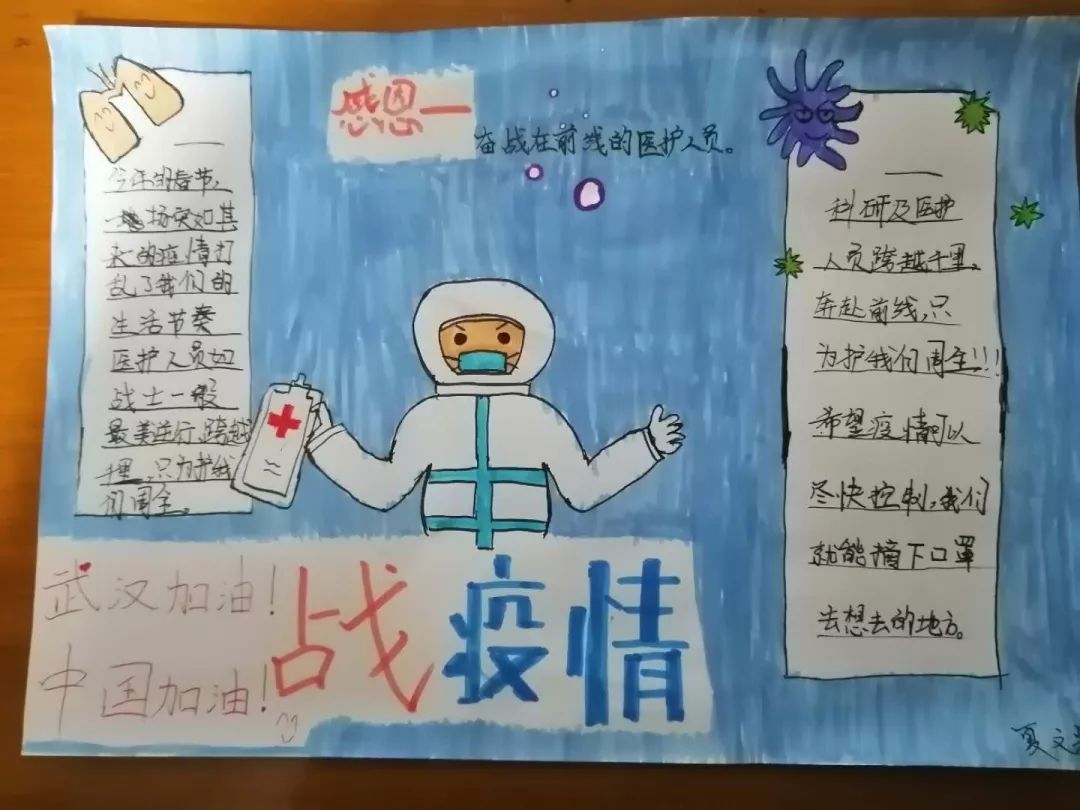 感恩—
奋战在前线的医护人员。
今年的春节，
一场突如其
来的疫情打
乱了我们的
生活节奏
医护人员如
战士一般
最美逆行，跨越
千里，只为护我
们周全。
科研及医护
人员跨越千里、
奔赴前线，只
为护我们周全!!!
希望疫情可以
尽快控制，我们
就能摘下口罩
去想去的地方。
武汉加油！
中国加油！
战疫情
夏文